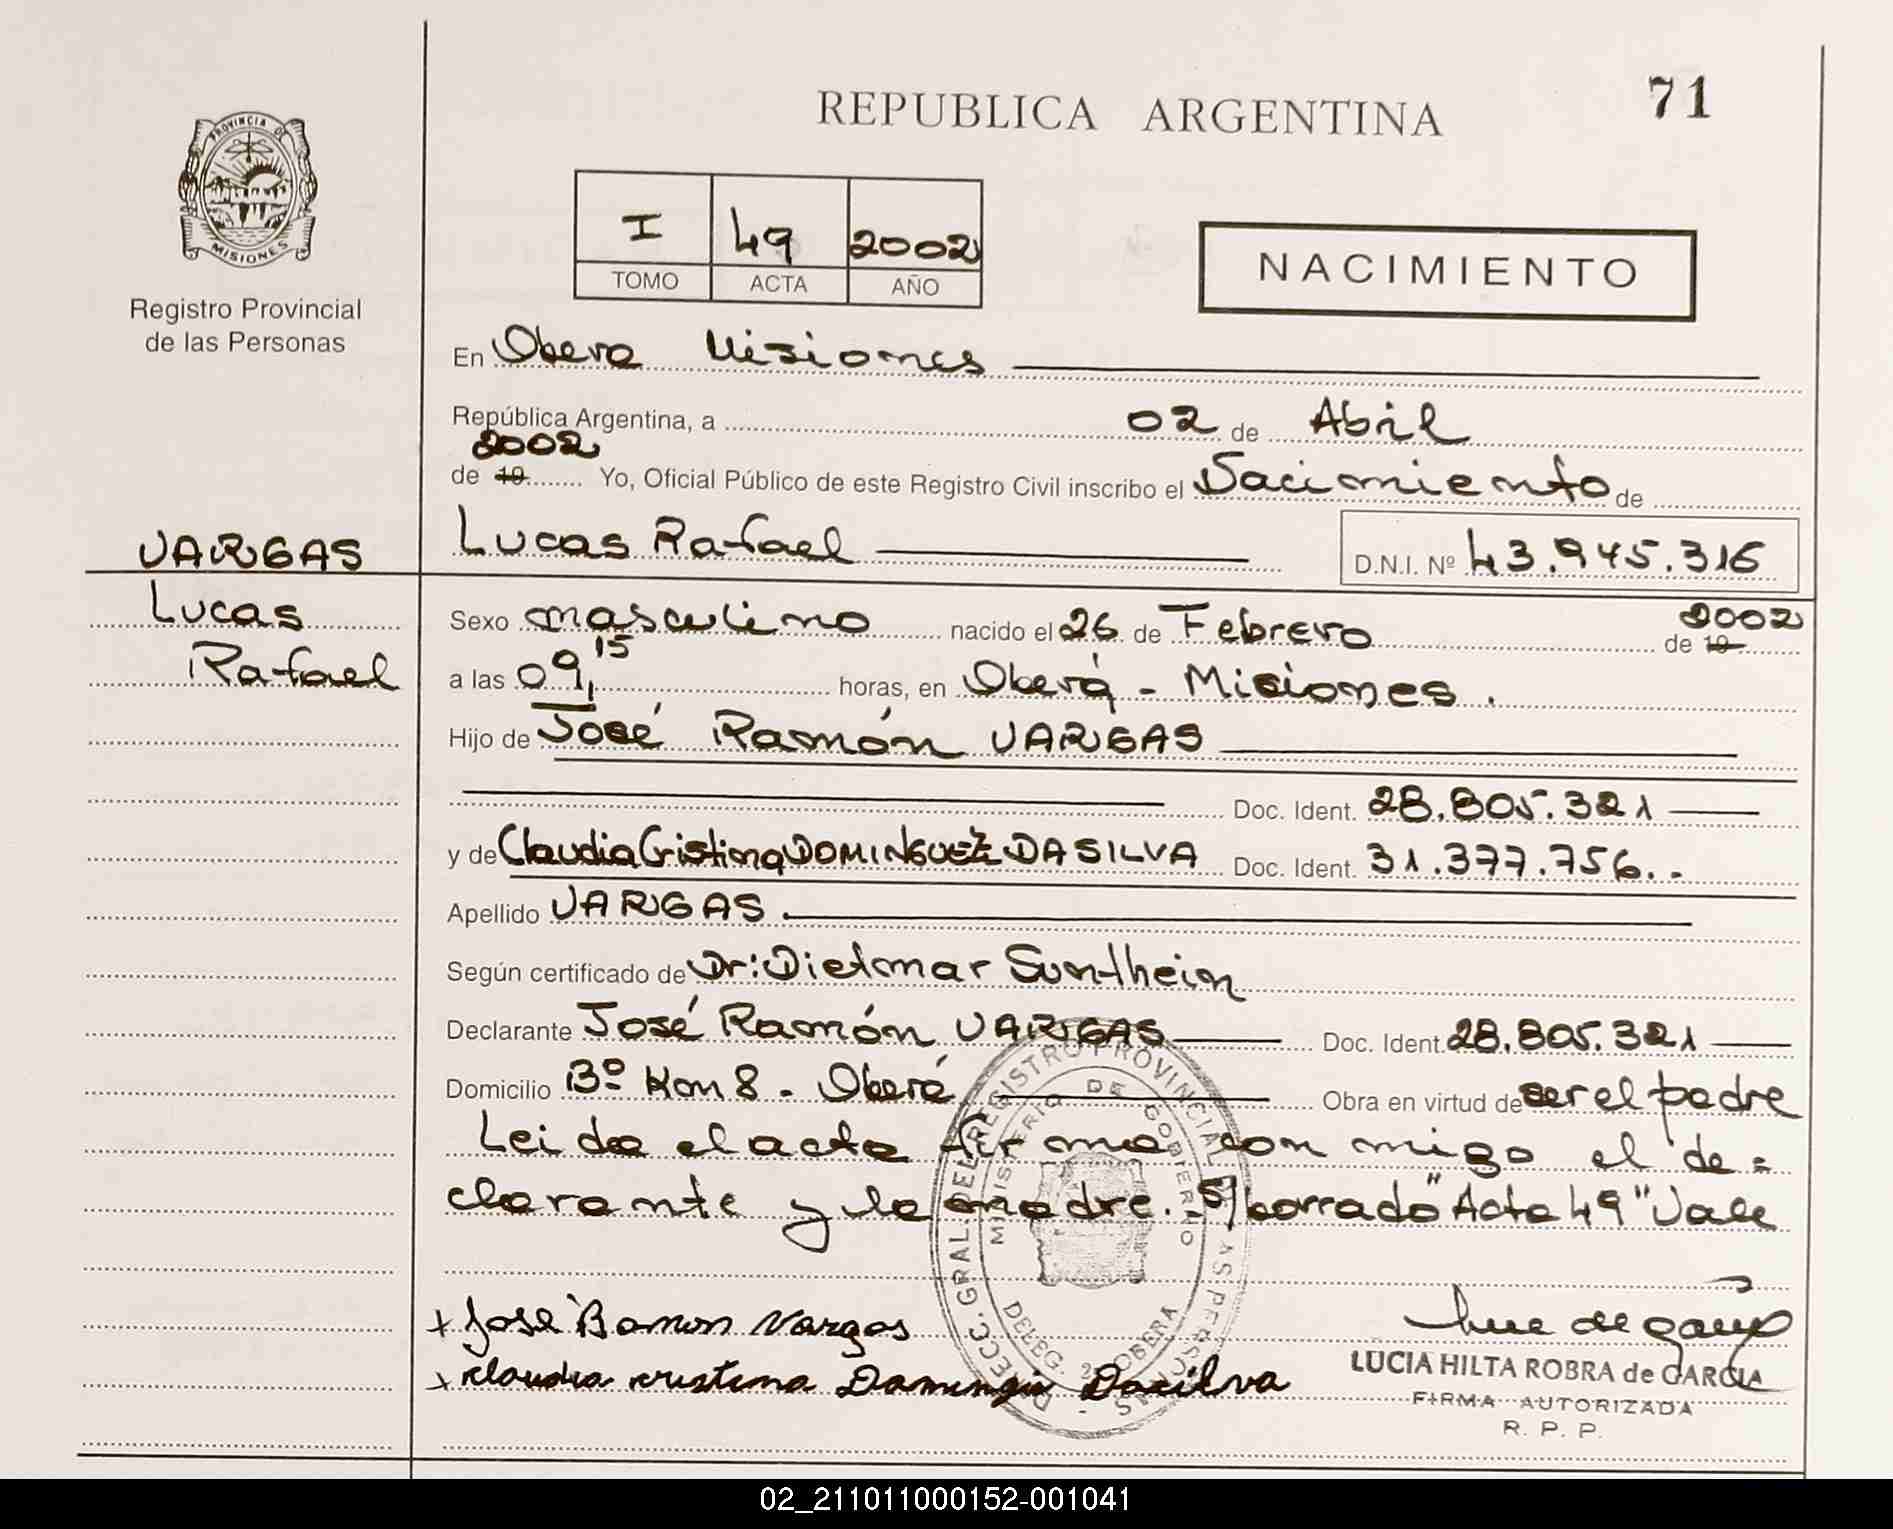 71
REPUBLICA ARGENTINA
PROVINCIA DE
MISIONES
Registro Provincial
de las Personas
I 49 2002
TOMO ACTA AÑO
NACIMIENTO
En Obera Misiones
República Argentina, a 02 de Abril
2002
de 19 Yo, Oficial Público de este Registro Civil inscribo el Nacimiento de
VARGAS
Lucas
Rafael
Lucas Rafael D.N.I. Nº 43.945.316
Sexo masculino nacido el 26 de Febrero de 19 2002
a las 09,15 horas, en Oberá - Misiones.
Hijo de José Ramón VARGAS
Doc. Ident. 28.805.321
y de Claudia Cristina DOMINGUEZ DA SILVA Doc. Ident. 31.377.756.-
Apellido VARGAS
Según certificado de Dr: Dietmar Suntheim
Declarante José Ramón VARGAS Doc. Ident. 28.805.321
Domicilio Bº Km 8 - Oberá Obra en virtud de ser el padre
Leida el acta firma con migo el de=
clarante y la madre. S/borrado "Acta 49" Vale
DIRECC. GRAL. DEL REGISTRO PROVINCIAL DE LAS PERSONAS
MINISTERIO DE GOBIERNO
DELEG. 2 OBERA
x José Ramon Vargas
x claudia cristina Dasilva
LUCIA HILTA ROBRA de GARCIA
FIRMA AUTORIZADA
R. P. P.
02_211011000152-001041